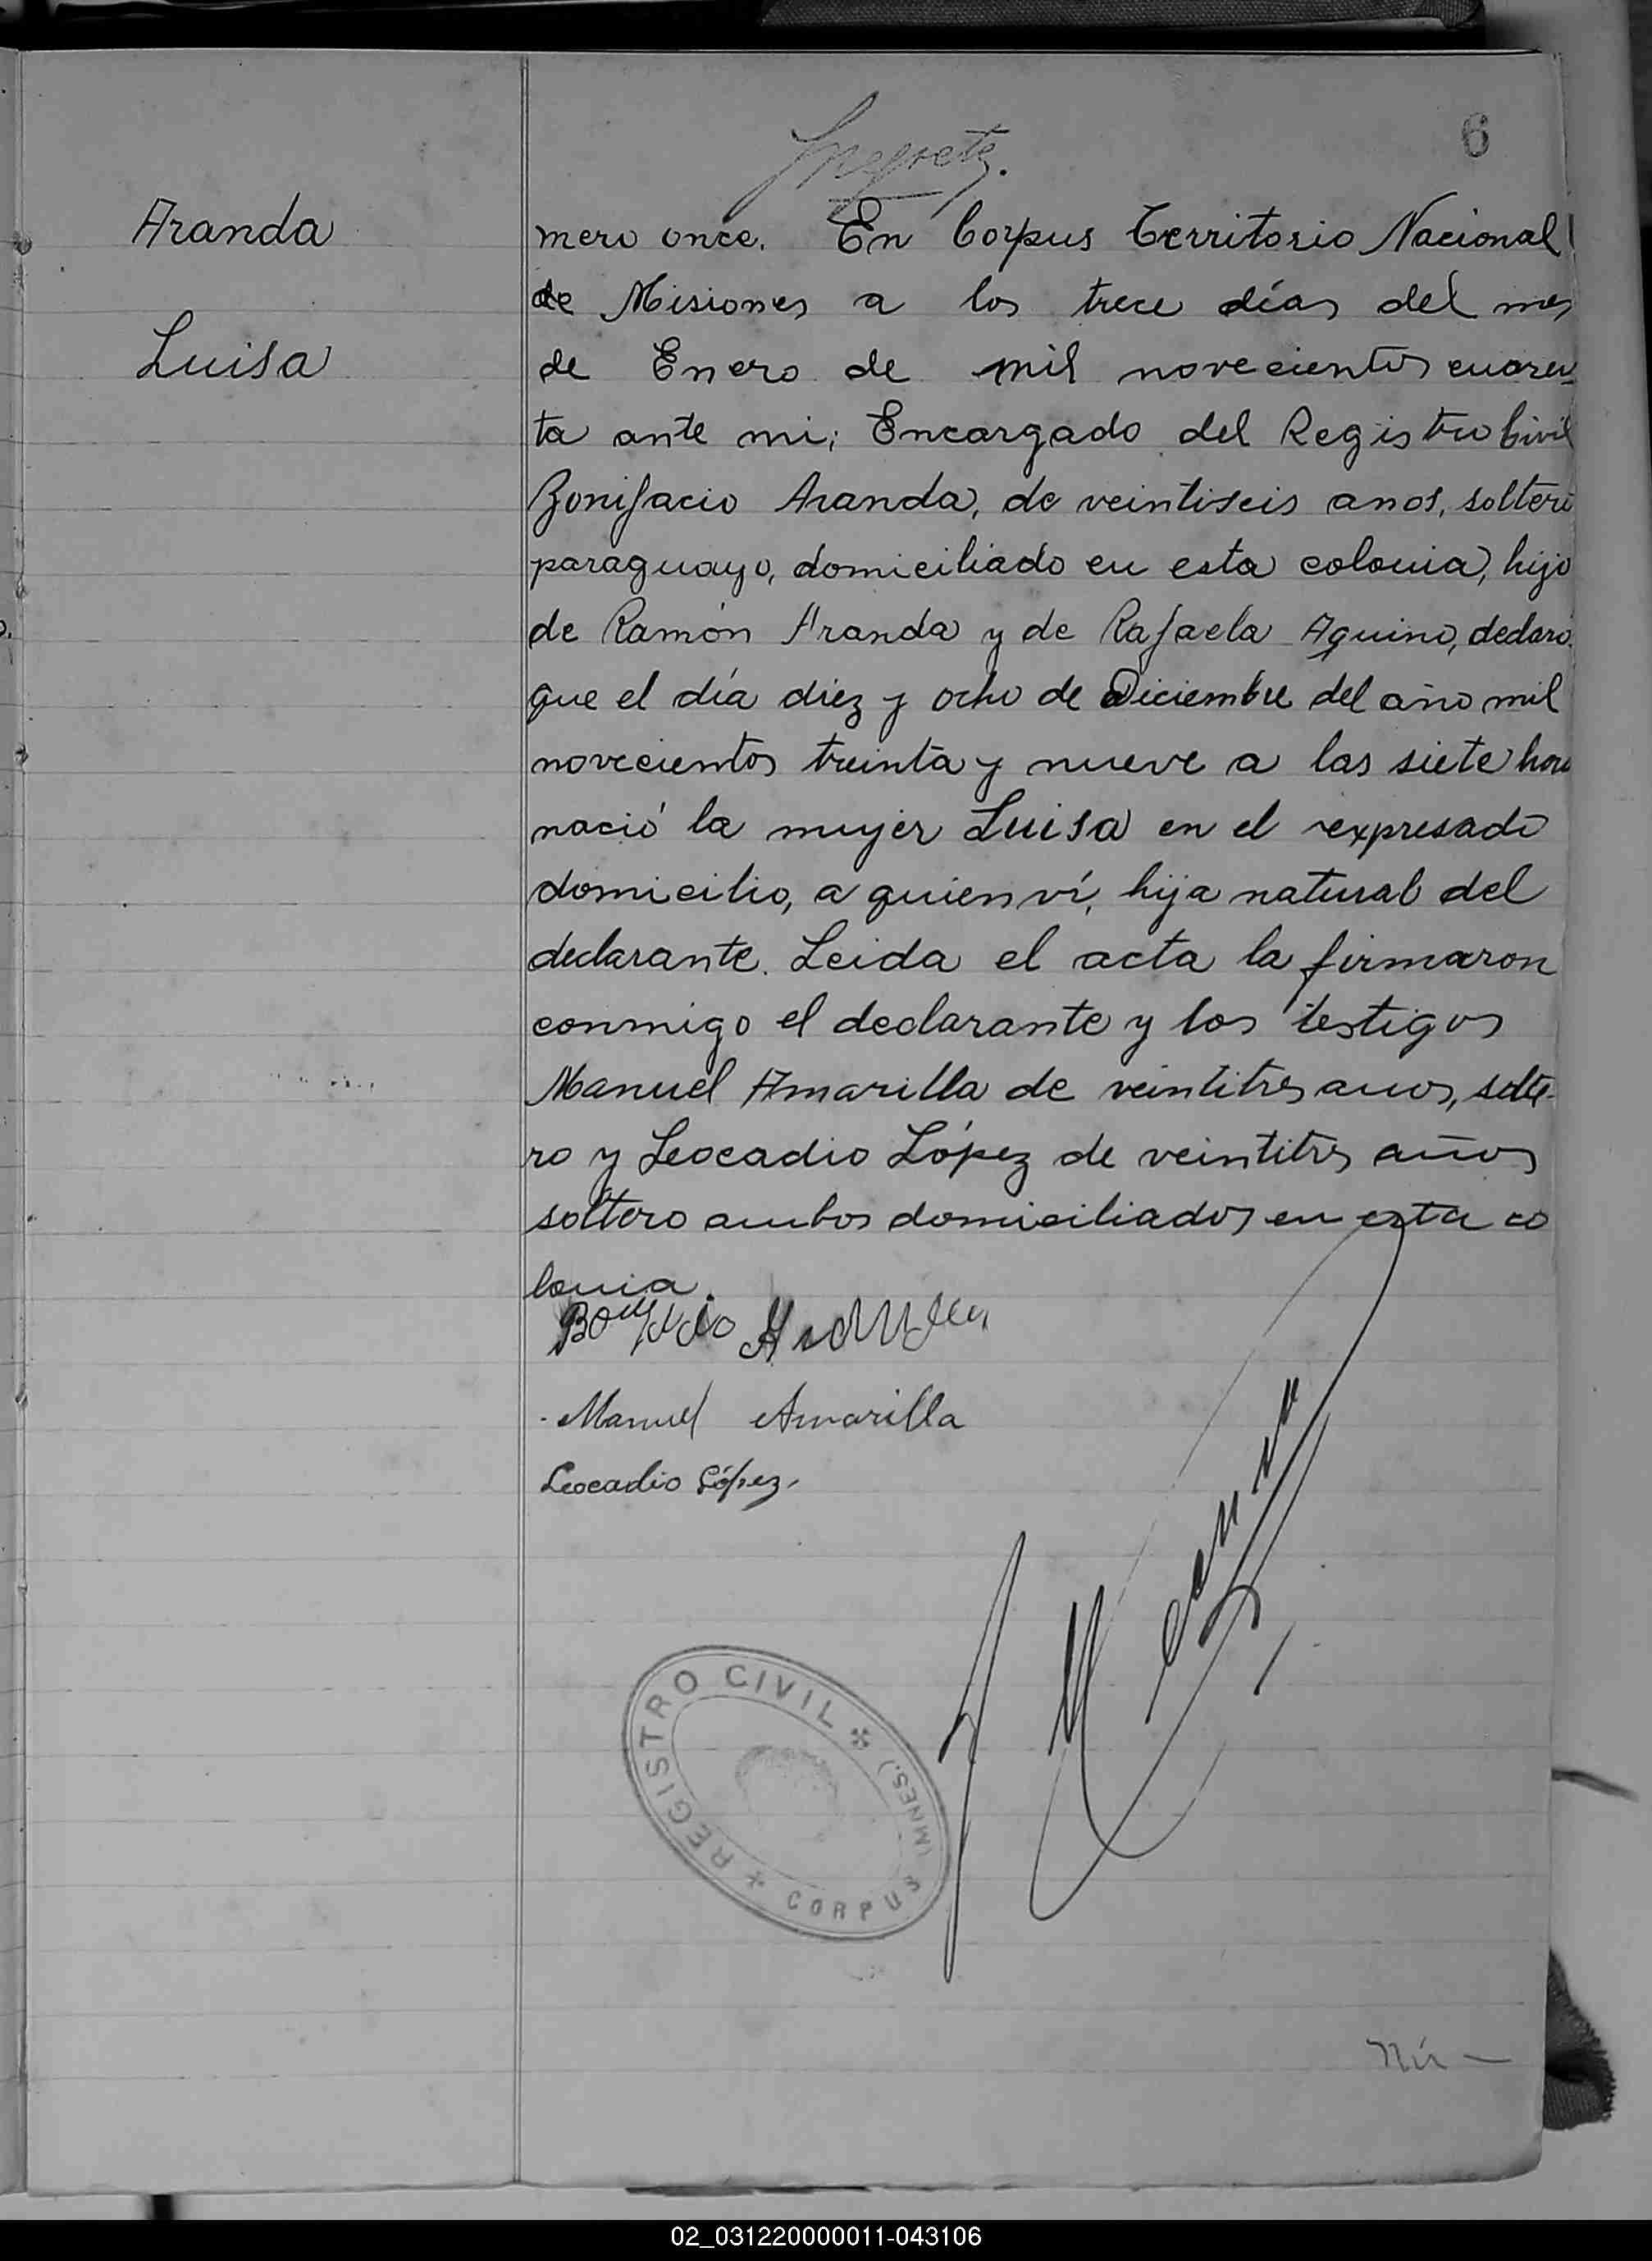 6
Negrete.
Aranda
Luisa
mero once. En Corpus Territorio Nacional
de Misiones a los trece días del mes
de Enero de mil novecientos cuaren
ta ante mi; Encargado del Registro Civil
Bonifacio Aranda, de veintiseis anos, soltero
paraguayo, domiciliado en esta colonia, hijo
de Ramón Aranda y de Rafaela Aquino, declaró
que el día diez y ocho de Diciembre del año mil
novecientos treinta y nueve a las siete hora
nació la mujer Luisa en el expresado
domicilio, a quien ví, hija natural del
declarante. Leida el acta la firmaron
conmigo el declarante y los testigos
Manuel Amarilla de veintitres anos, solte-
ro y Leocadio López de veintitres años
soltero ambos domiciliados en esta co
lonia.
Bonifacio Aranda
Manuel Amarilla
Leocadio López.
REGISTRO CIVIL
CORPUS (MNES.)
Nú—
02_031220000011-043106